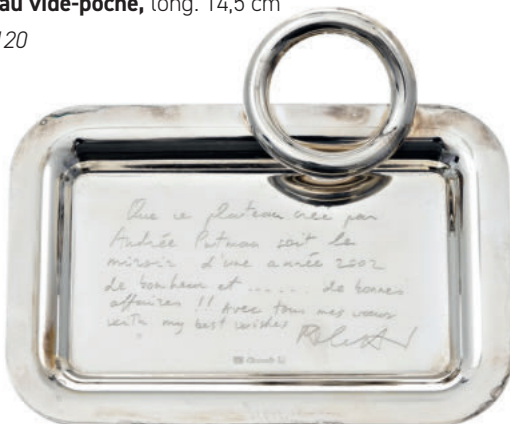 au vide-poche, long. 14,5 cm
120
Que ce plateau crée par
Andrée Putman soit le
miroir d'une année 2002
de bonheur et ...... de bonnes
affaires !! Avec tous mes vœux
with my best wishes